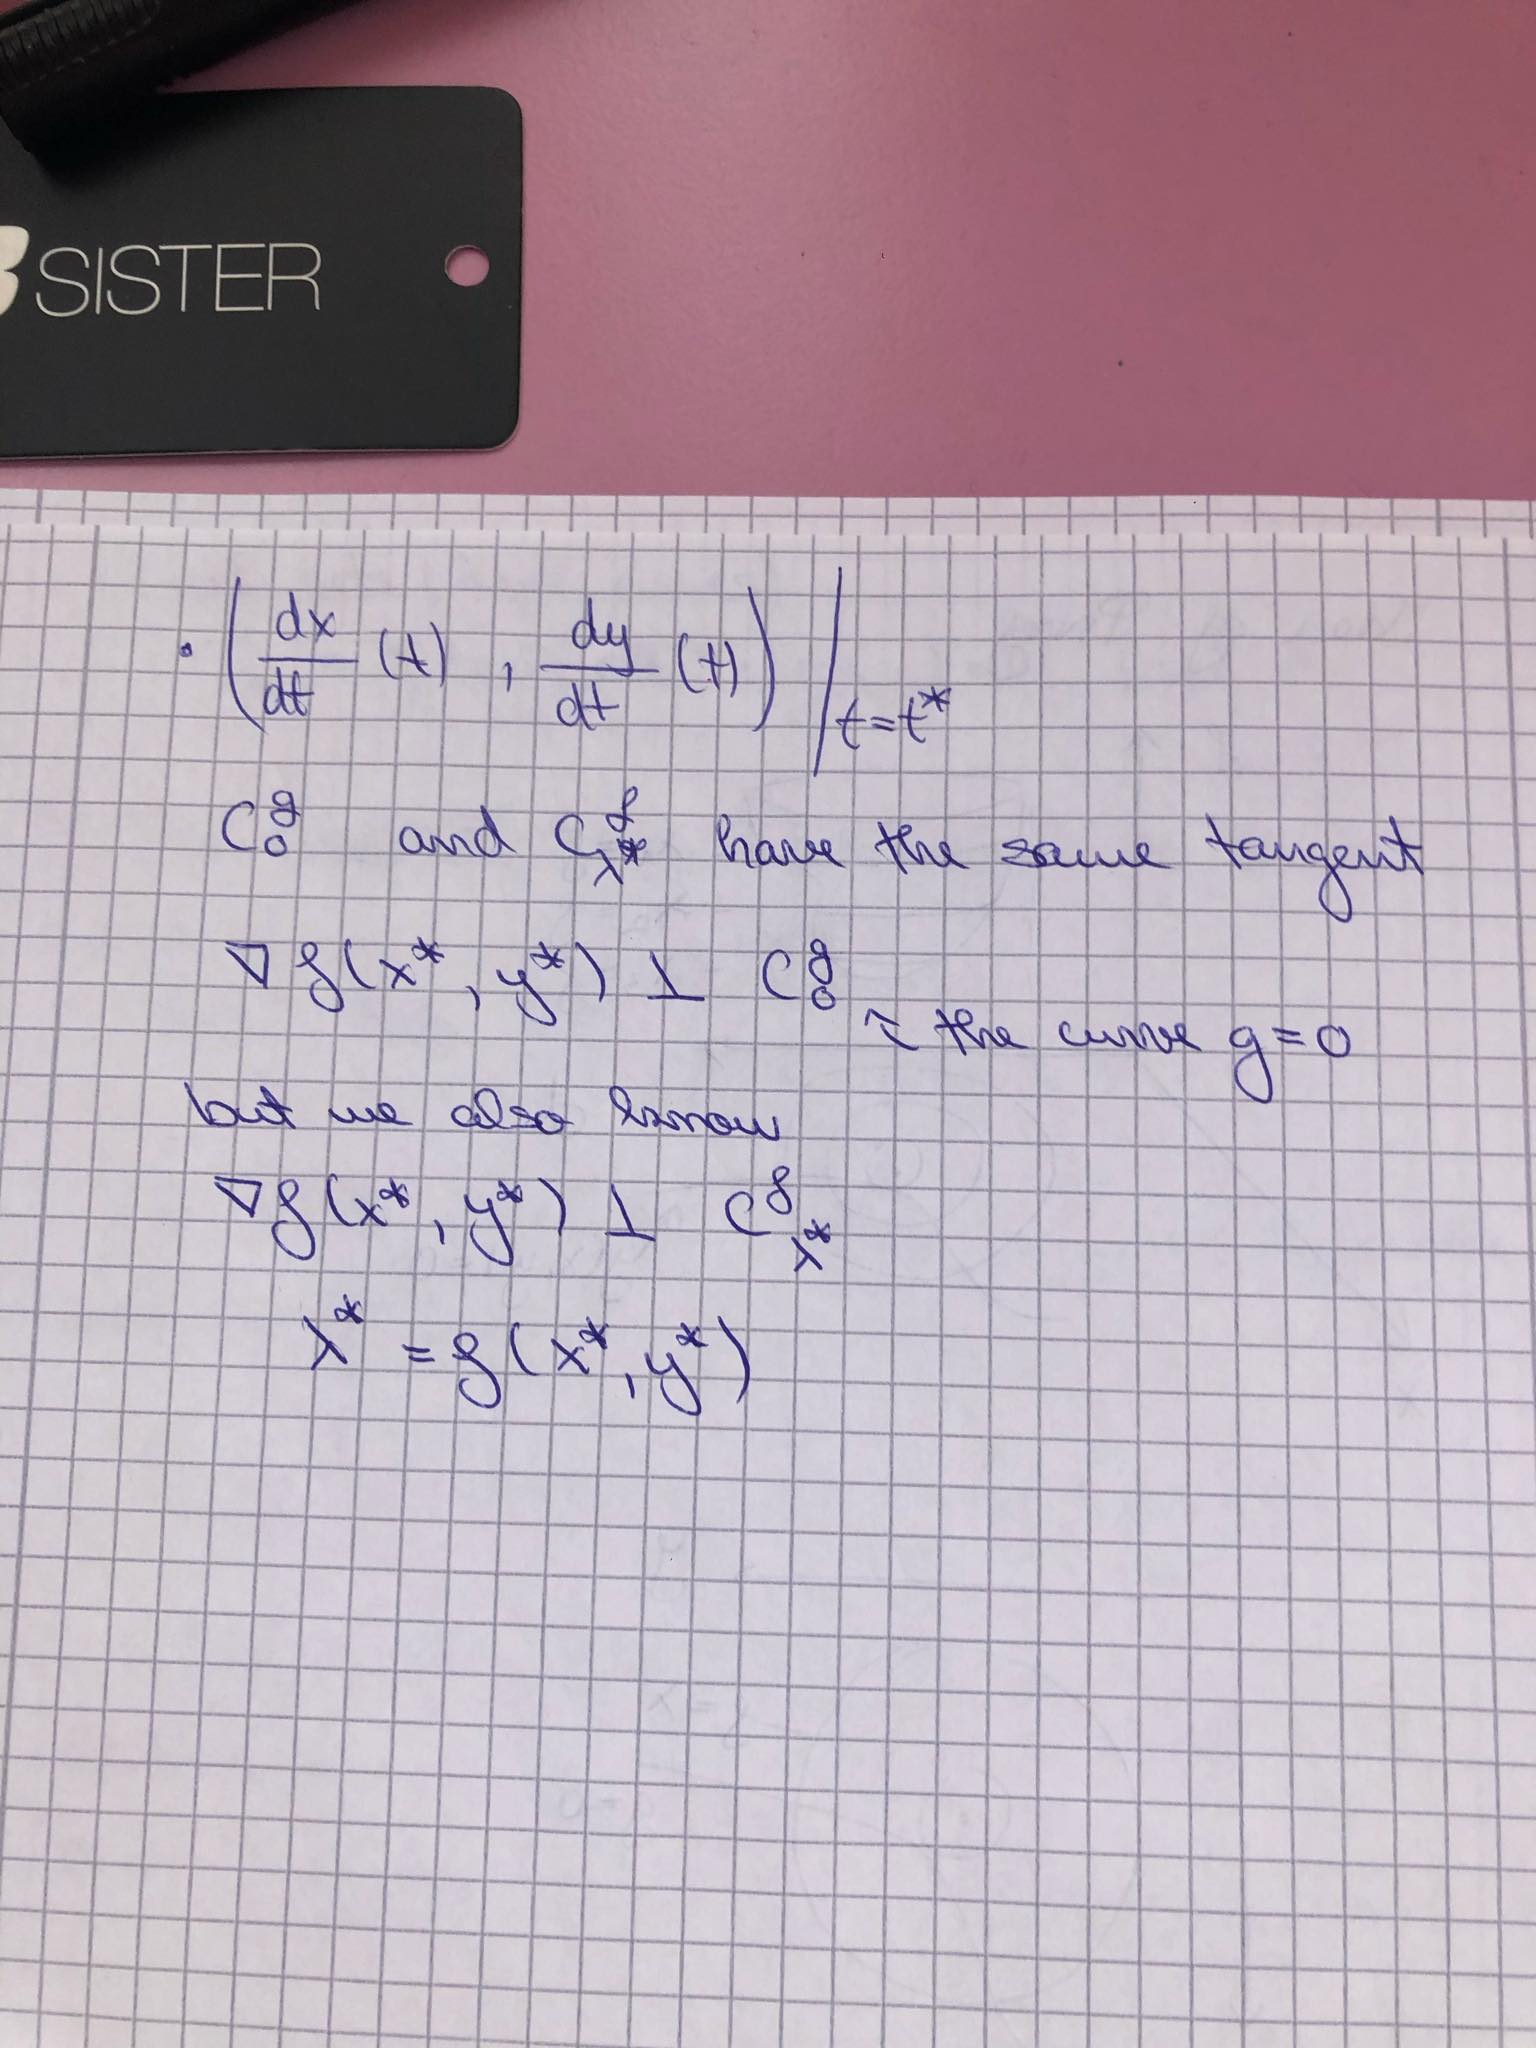 SISTER
· (dx/dt (t), dy/dt (t)) |t=t*
C₀ᵍ and C_λ*^f have the same tangent
∇f(x*, y*) ⊥ C₀ᵍ
~ the curve g=0
but we also know
∇f(x*, y*) ⊥ C^f_λ*
λ* = f(x*, y*)